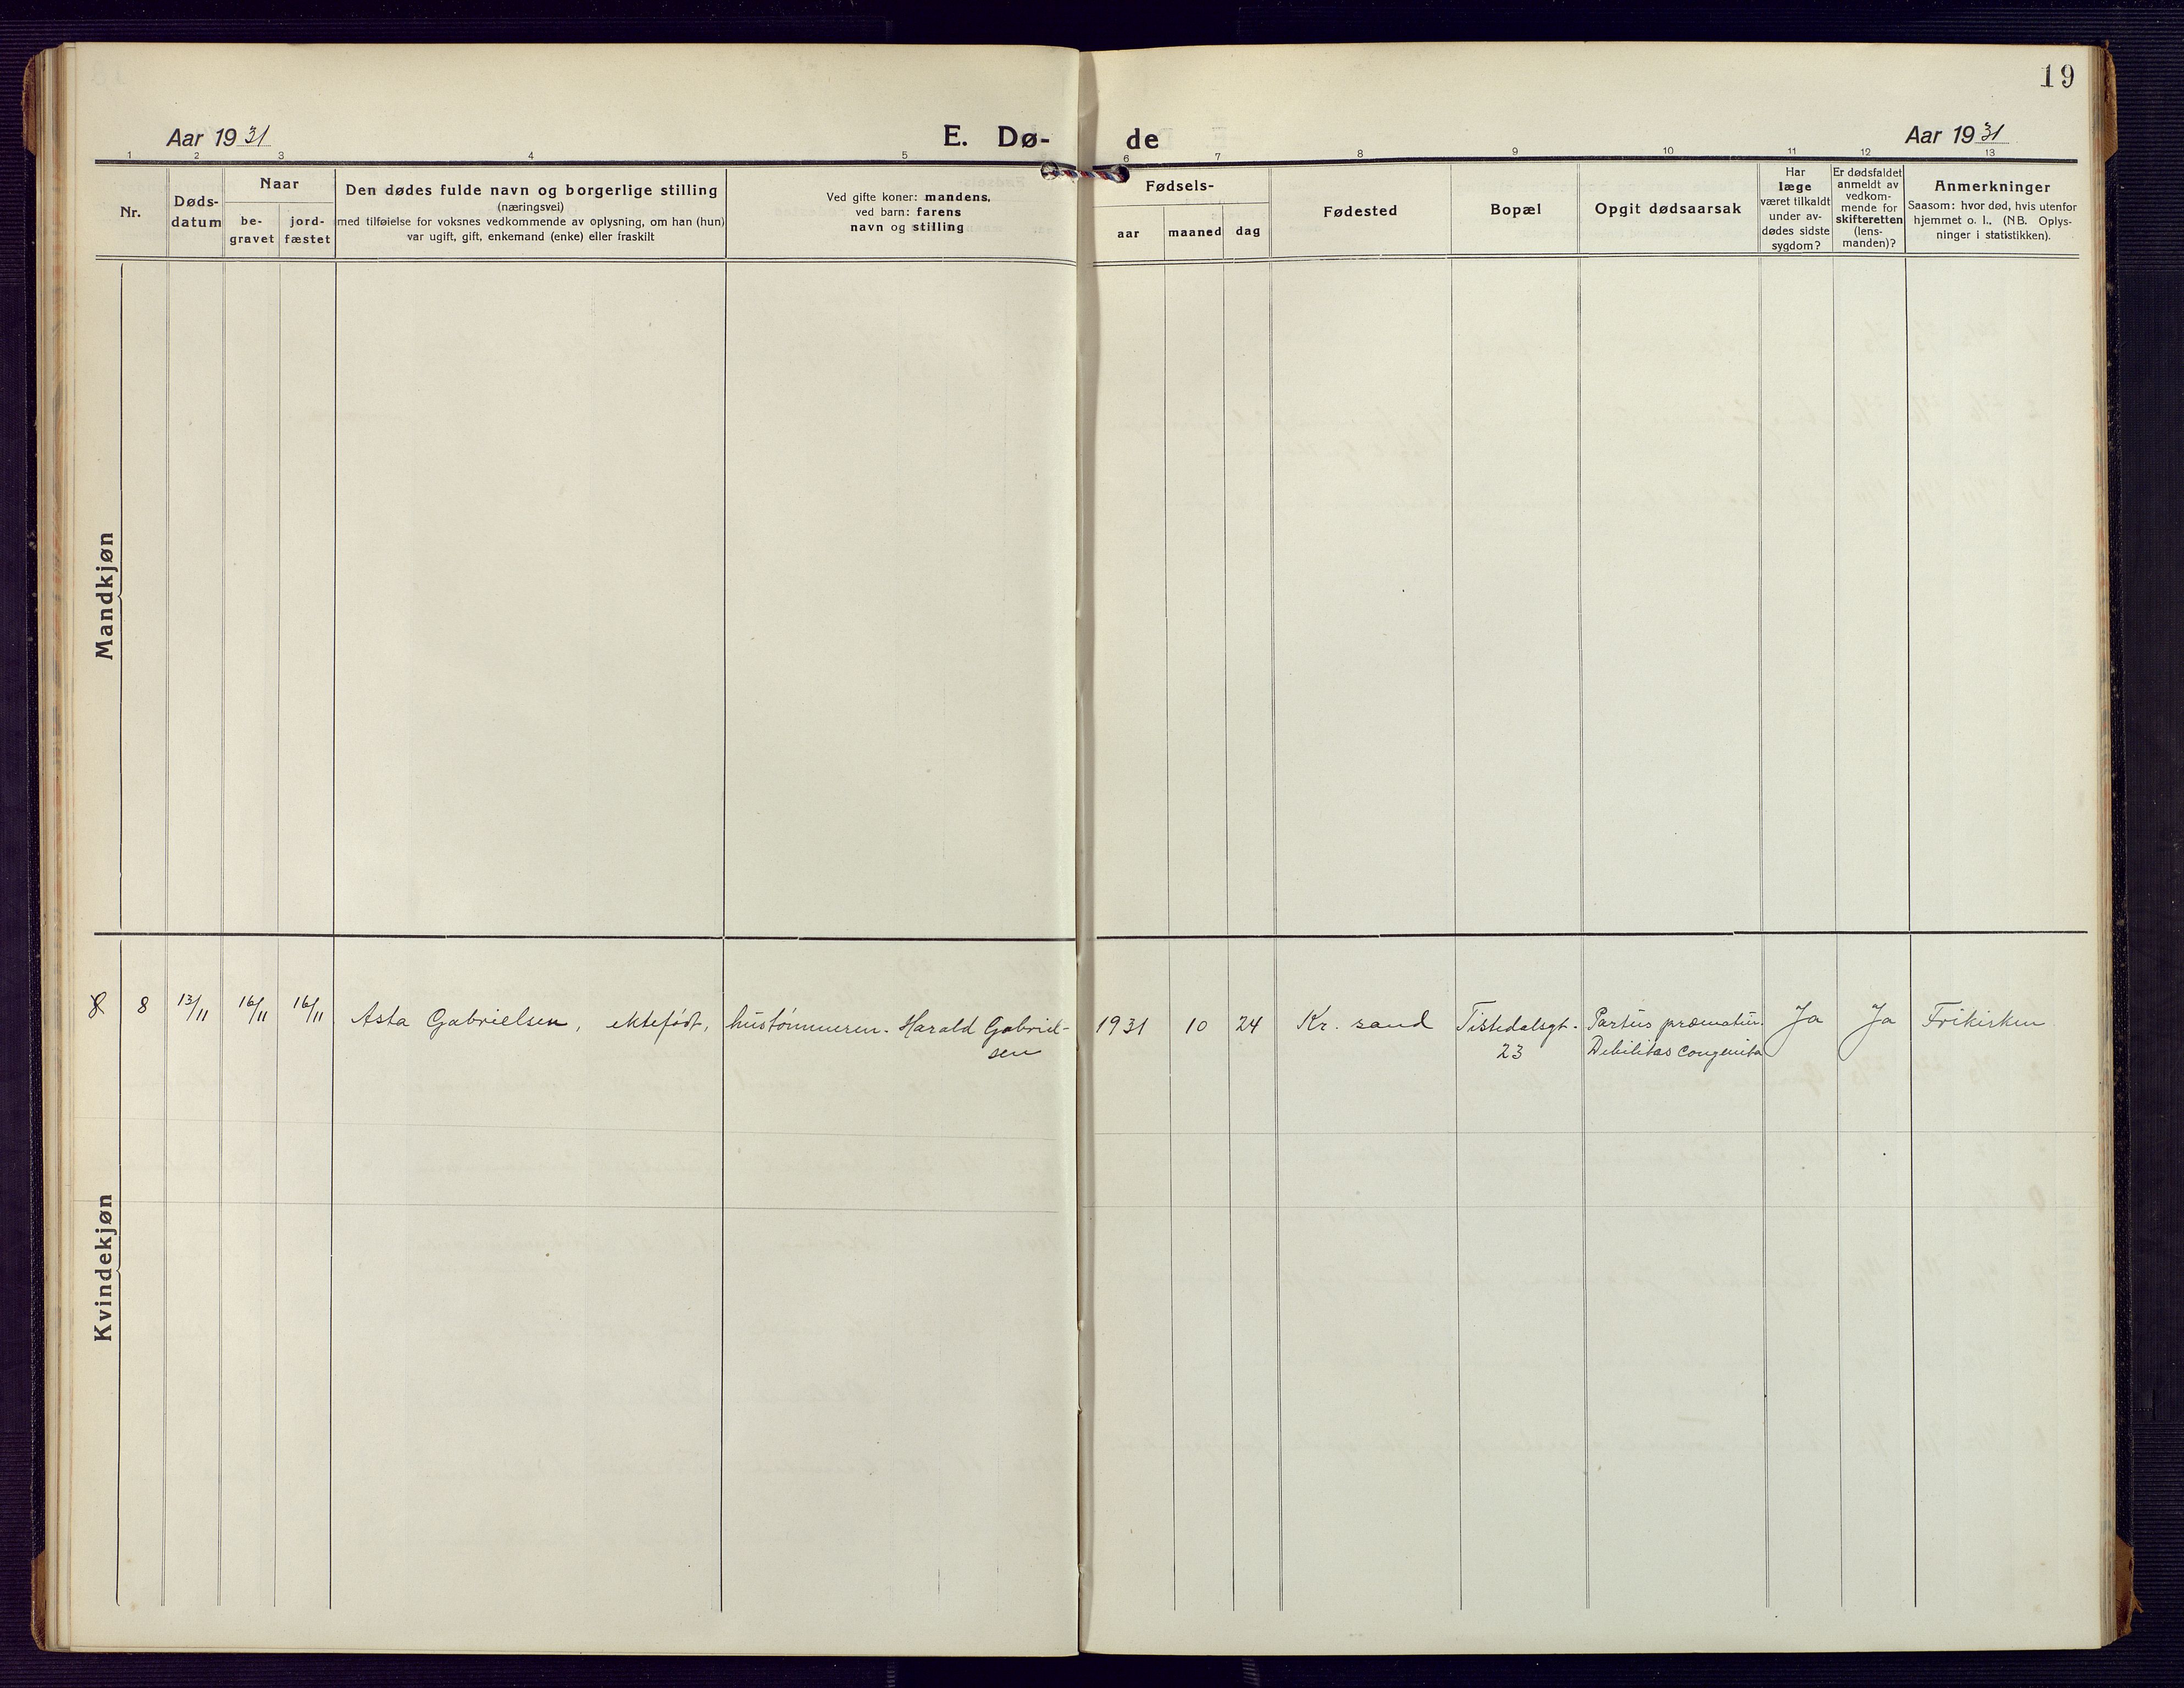 19
Aar 1931
E. Dø-
de
Aar 1931
1 2 3 4 5 6 7 8 9 10 11 12 13
Nr.
Døds-
datum
Naar
be-
gravet
jord-
fæstet
Den dødes fulde navn og borgerlige stilling
(næringsvei)
med tilføielse for voksnes vedkommende av oplysning, om han (hun)
var ugift, gift, enkemand (enke) eller fraskilt
Ved gifte koner: mandens,
ved barn: farens
navn og stilling
Fødsels-
aar
maaned
dag
Fødested
Bopæl
Opgit dødsaarsak
Har
læge
været tilkaldt
under av-
dødes sidste
sygdom?
Er dødsfaldet
anmeldt av
vedkom-
mende for
skifteretten
(lens-
manden)?
Anmerkninger
Saasom: hvor død, hvis utenfor
hjemmet o. l., (NB. Oplys-
ninger i statistikken).
Mandkjøn
Kvindekjøn
8 8 13/11 16/11 16/11 Asta Gabrielsen, ektefødt, hustømmerm. Harald Gabriel-
sen
1931 10 24 Kr. sand Tistedalsgt. Partus præmatur. Ja Ja Frikirken
23 Debilitas congenita